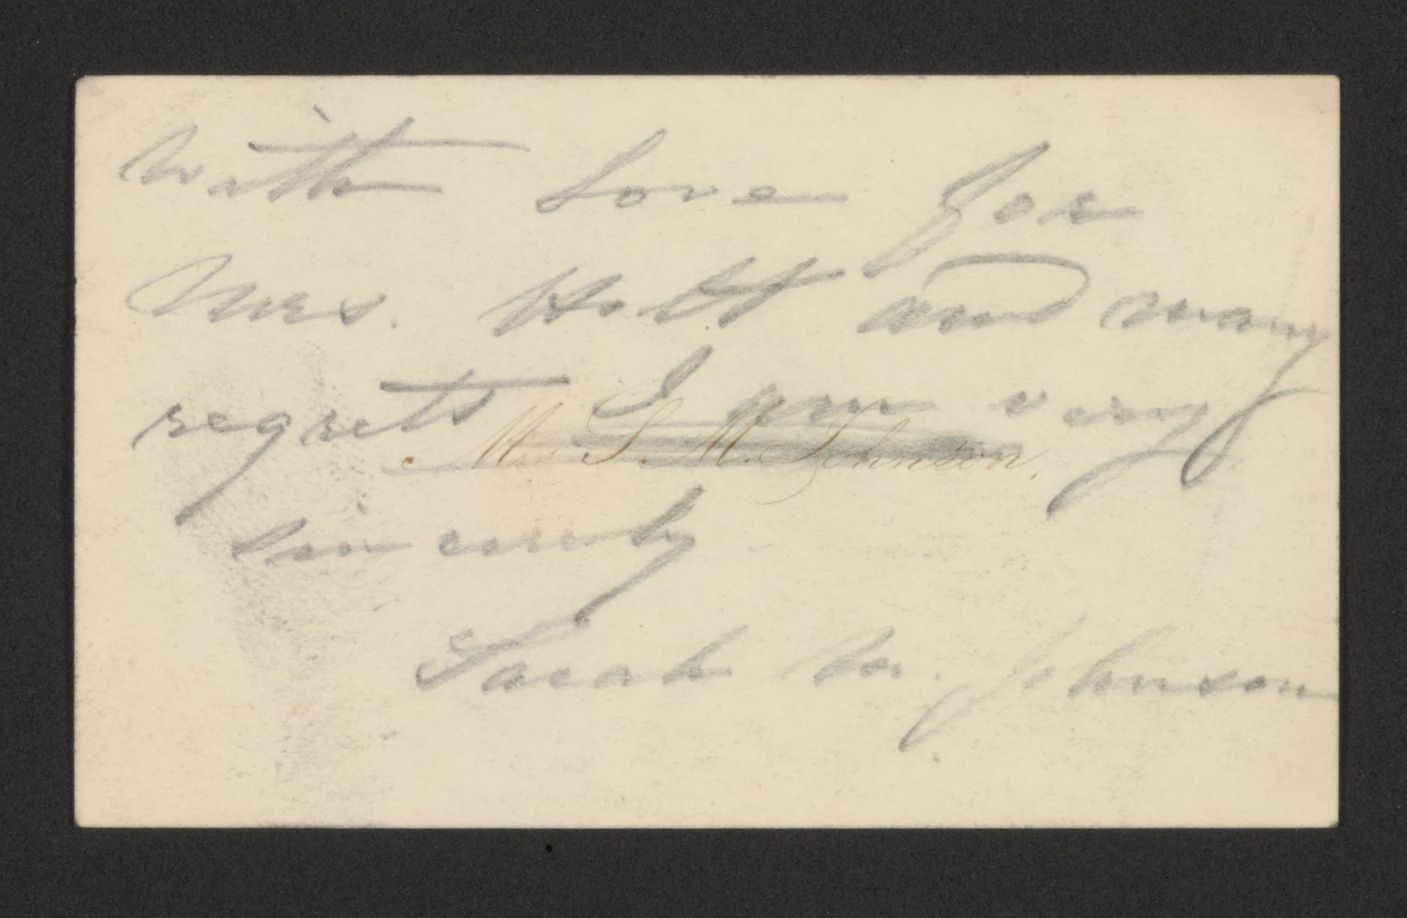 With Love for
Mrs. Holt and many
regrets I am very
Mrs S. M. Johnson.
sincerely
Sarah M. Johnson